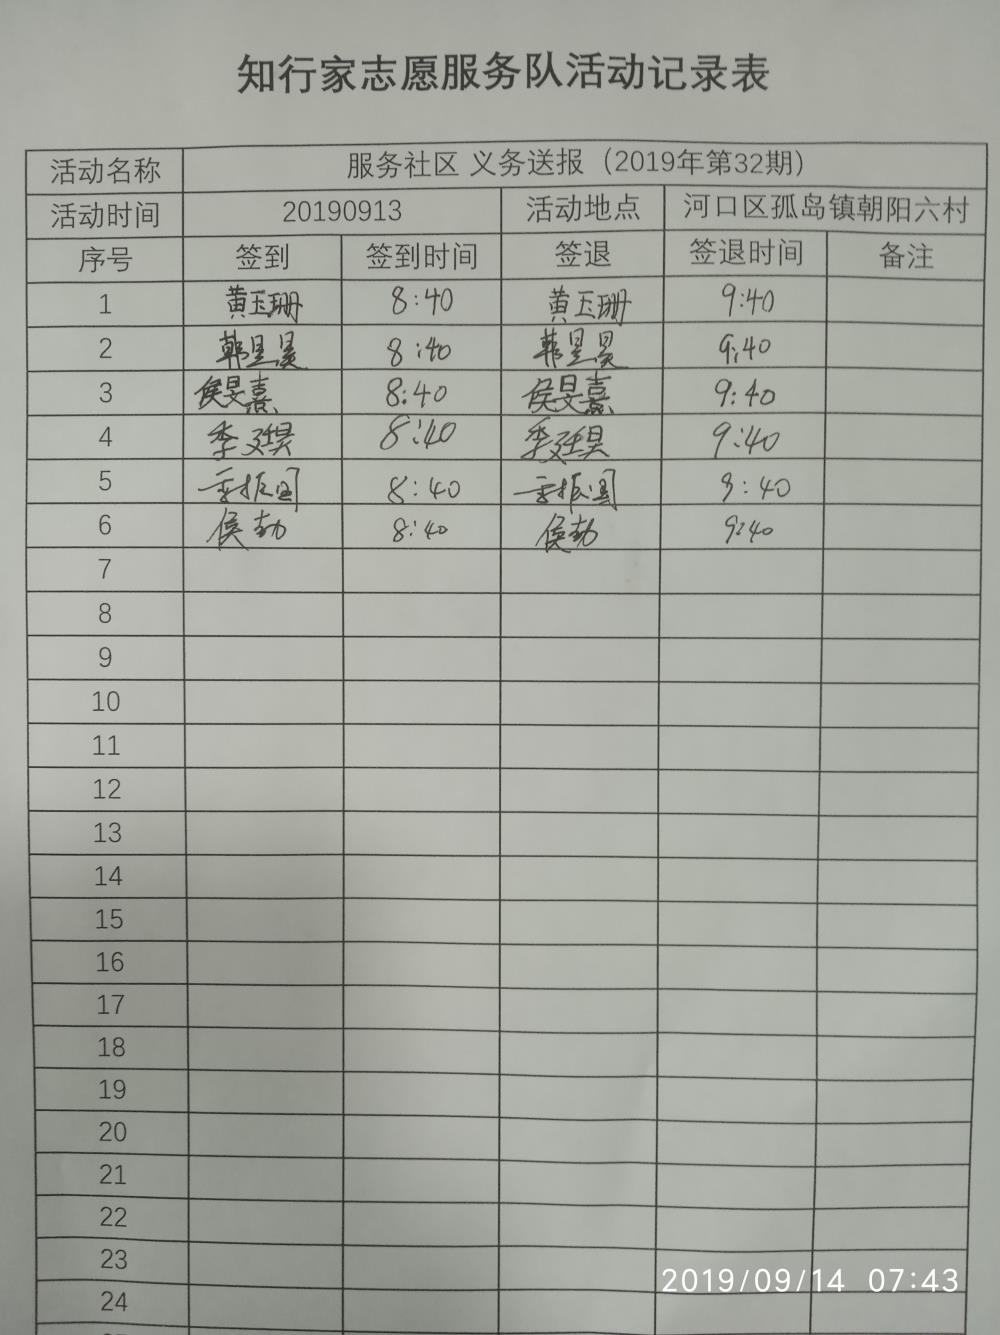 知行家志愿服务队活动记录表
活动名称 服务社区 义务送报（2019年第32期）
活动时间 20190913 活动地点 河口区孤岛镇朝阳六村
序号 签到 签到时间 签退 签退时间 备注
1 黄玉珊 8:40 黄玉珊 9:40
2 韩昱昊 8:40 韩昱昊 9:40
3 侯旻熹 8:40 侯旻熹 9:40
4 李廷昊 8:40 李廷昊 9:40
5 8:40 9:40
6 侯勃 8:40 侯勃 9:40
7
8
9
10
11
12
13
14
15
16
17
18
19
20
21
22
23
24
2019/09/14 07:43